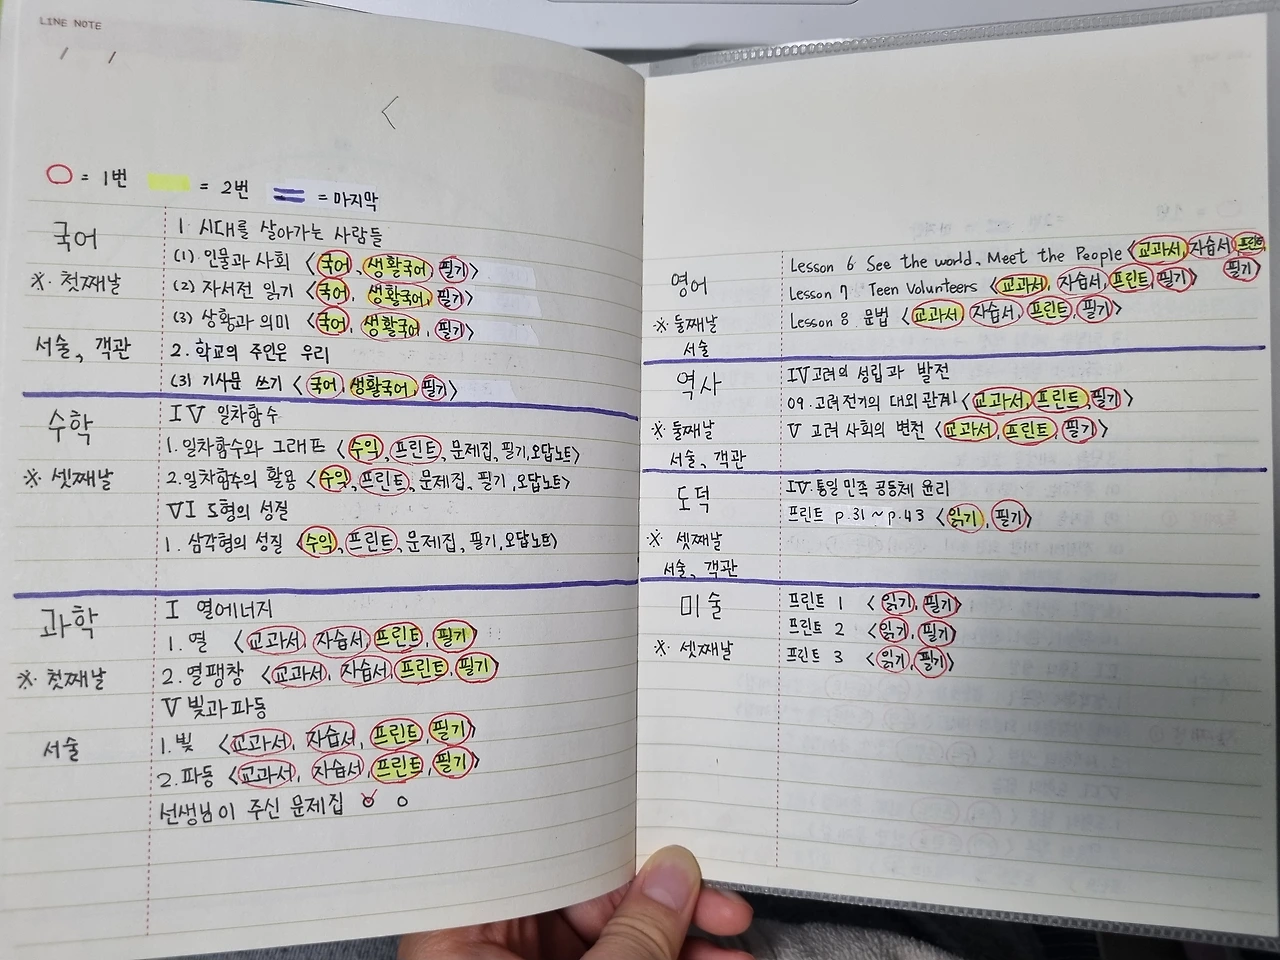 LINE NOTE
= 1번 = 2번 = 마지막
국어
※ 첫째날
서술, 객관
1. 시대를 살아가는 사람들
(1) 인물과 사회 <국어, 생활국어, 필기>
(2) 자서전 읽기 <국어, 생활국어, 필기>
(3) 상황과 의미 <국어, 생활국어, 필기>
2. 학교의 주인은 우리
(3) 기사문 쓰기 <국어, 생활국어, 필기>
수학
※ 셋째날
IV 일차함수
1. 일차함수와 그래프 <수익, 프린트, 문제집, 필기, 오답노트>
2. 일차함수의 활용 <수익, 프린트, 문제집, 필기, 오답노트>
VI 도형의 성질
1. 삼각형의 성질 <수익, 프린트, 문제집, 필기, 오답노트>
과학
※ 첫째날
서술
I 열에너지
1. 열 <교과서, 자습서, 프린트, 필기>
2. 열팽창 <교과서, 자습서, 프린트, 필기>
V 빛과 파동
1. 빛 <교과서, 자습서, 프린트, 필기>
2. 파동 <교과서, 자습서, 프린트, 필기>
선생님이 주신 문제집
영어
※ 둘째날
서술
Lesson 6 See the world, Meet the People <교과서, 자습서, 프린트, 필기>
Lesson 7 Teen Volunteers <교과서, 자습서, 프린트, 필기>
Lesson 8. 문법 <교과서, 자습서, 프린트, 필기>
역사
※ 둘째날
서술, 객관
IV 고려의 성립과 발전
09. 고려 전기의 대외 관계 <교과서, 프린트, 필기>
V 고려 사회의 변천 <교과서, 프린트, 필기>
도덕
※ 셋째날
서술, 객관
IV. 통일 민족 공동체 윤리
프린트 p.31 ~ p.43 <읽기, 필기>
미술
※ 셋째날
프린트 1 <읽기, 필기>
프린트 2 <읽기, 필기>
프린트 3 <읽기, 필기>